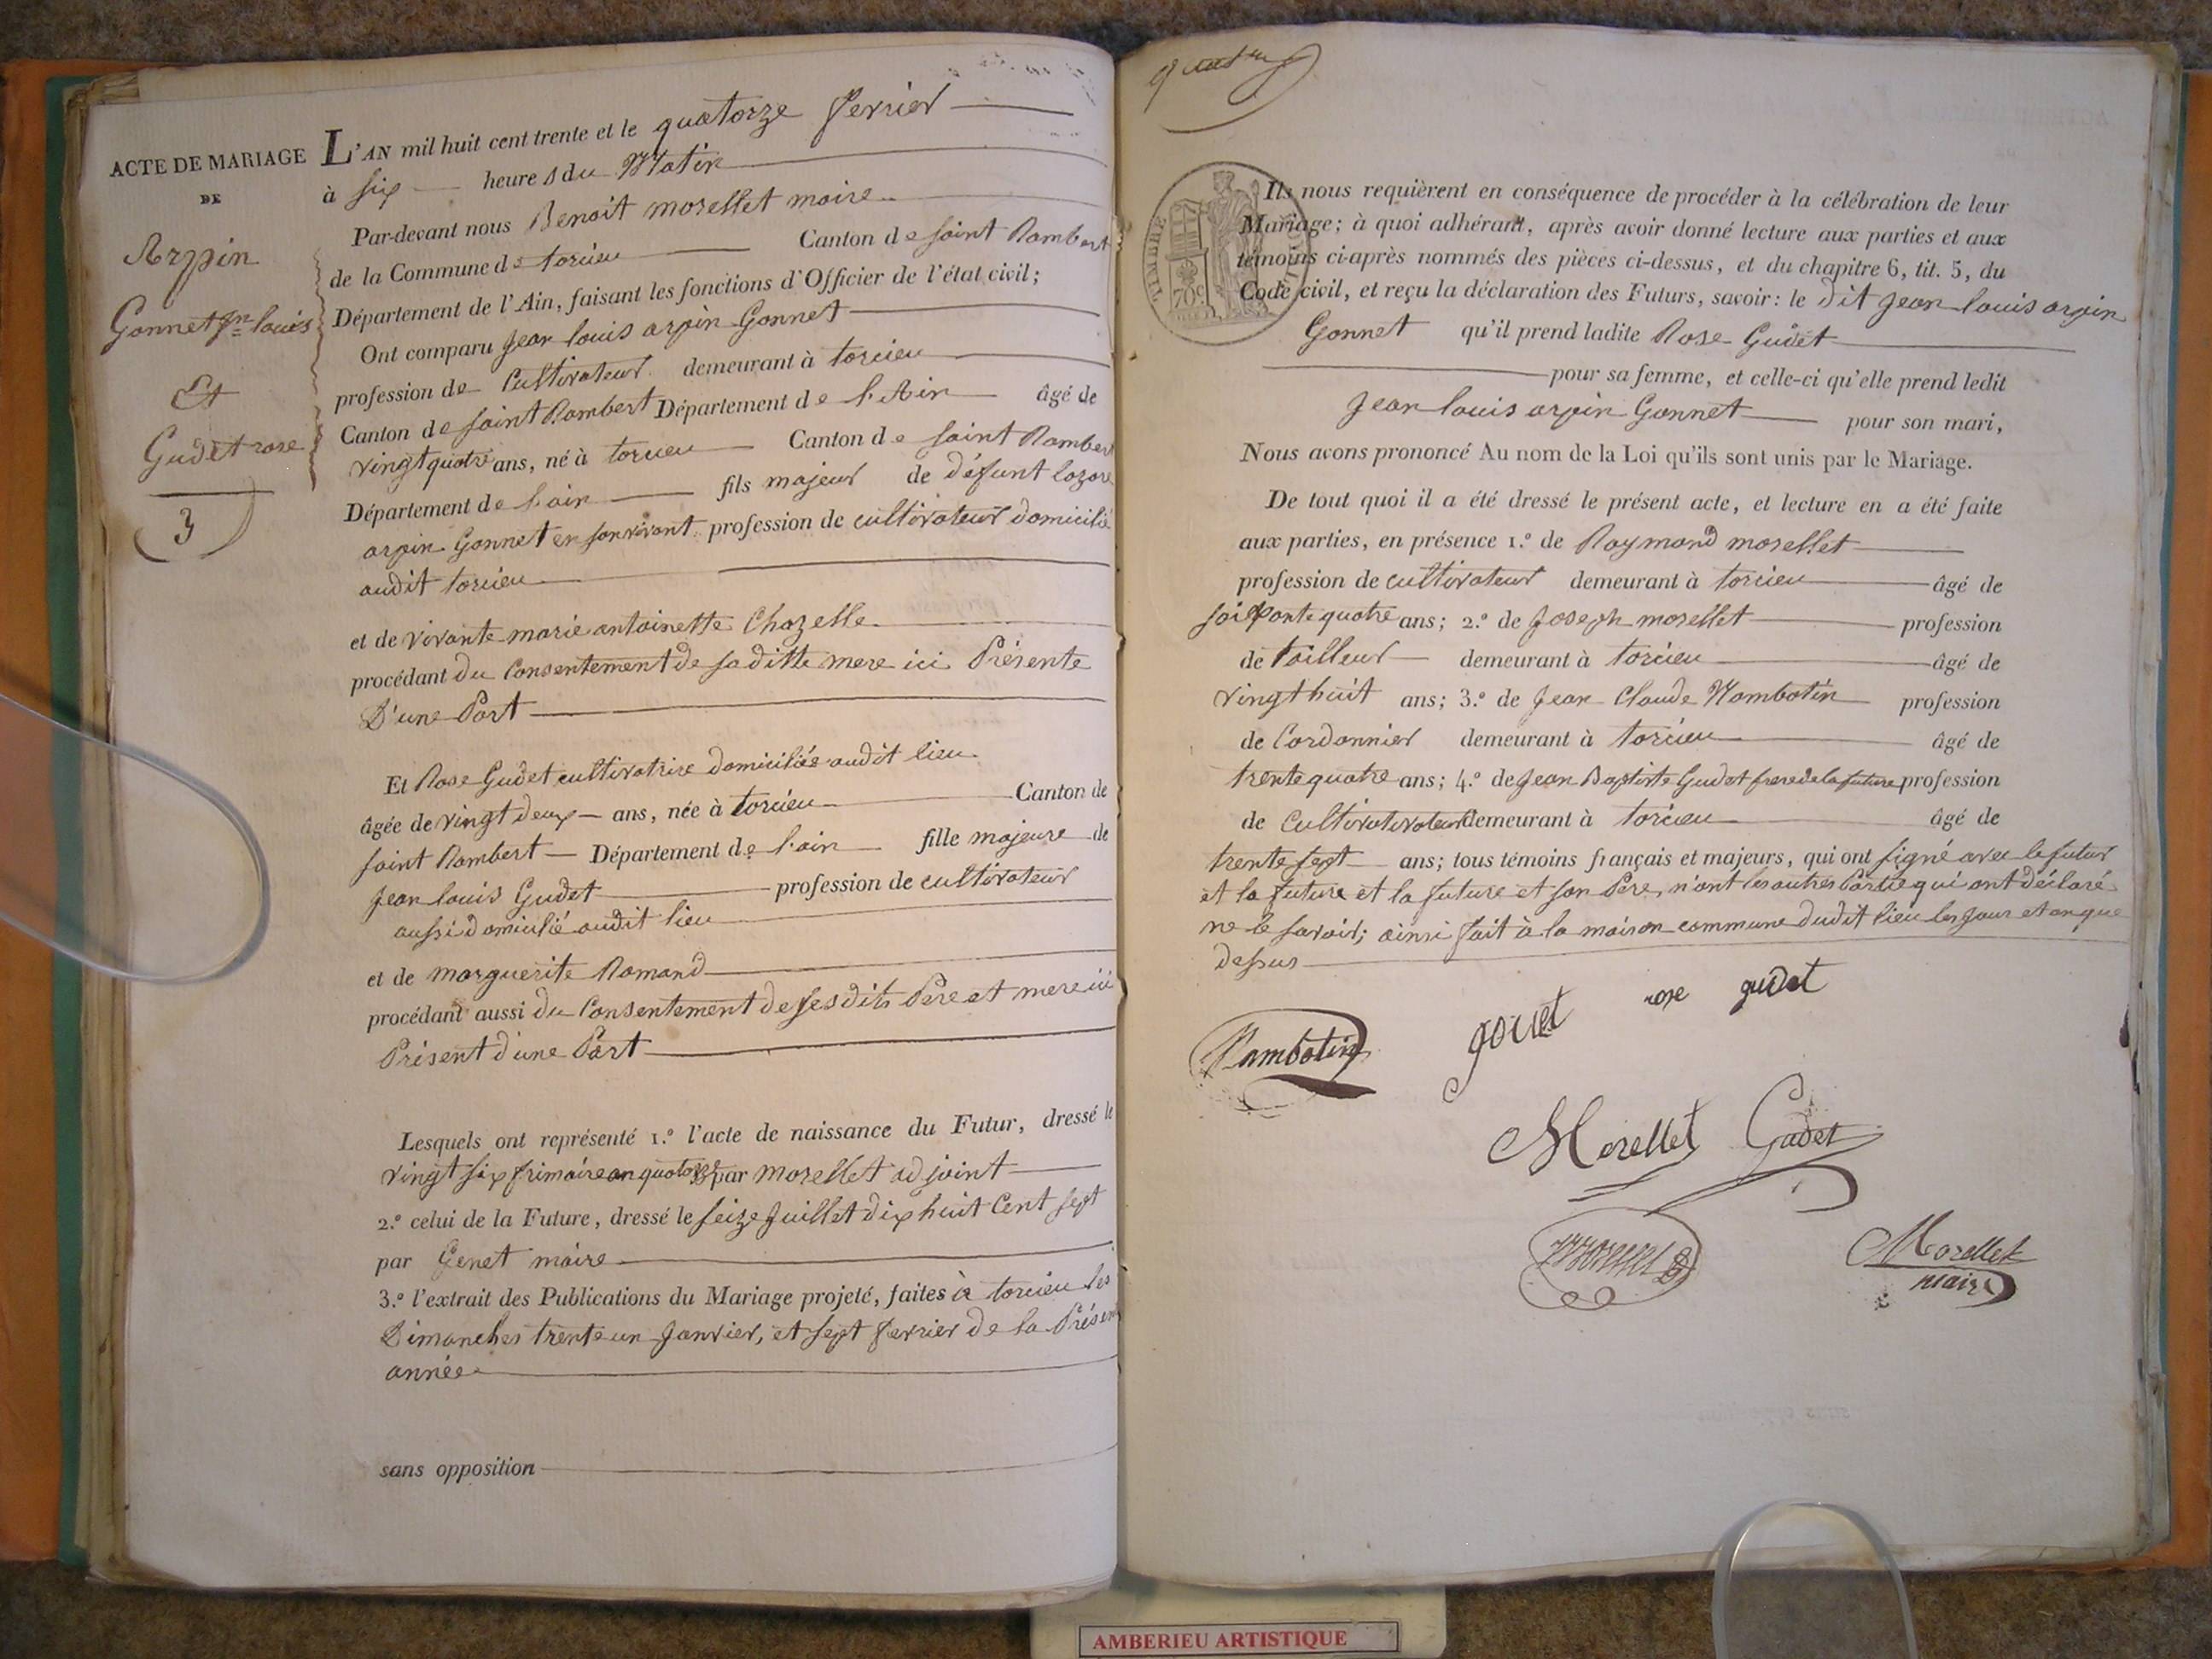 ACTE DE MARIAGE
DE
Arpin
Gonnet jn louis
Et
Gudet rose
3
L'AN mil huit cent trente et le quatorze fevrier
à six heures du Matin
Par-devant nous Benoit morellet maire
de la Commune de torcieu Canton de saint Rambert
Département de l'Ain, faisant les fonctions d'Officier de l'état civil;
Ont comparu Jean louis arpin Gonnet
profession de Cultivateur demeurant à torcieu
Canton de saint Rambert Département de l'Ain âgé de
vingt quatre ans, né à torcieu Canton de saint Rambert
Département de l'ain fils majeur de défunt lazare
arpin Gonnet en son vivant profession de cultivateur domicilié
audit torcieu
et de vivante marie antoinette Chazelle
procédant du Consentement de saditte mere ici Présente
D'une Part
Et Rose Gudet cultivatrice domiciliée audit lieu
âgée de vingt deux ans, née à torcieu Canton de
saint Rambert Département de l'ain fille majeure de
Jean louis Gudet profession de cultivateur
aussi domicilié audit lieu
et de marguerite Romand
procédant aussi du Consentement de ses dits Pere et mere ici
Présent d'une Part
Lesquels ont représenté 1.º l'acte de naissance du Futur, dressé le
vingt six frimaire an quatorze par morellet adjoint
2.º celui de la Future, dressé le seize Juillet dix huit Cent sept
par Genet maire
3.º l'extrait des Publications du Mariage projeté, faites à torcieu les
Dimanches trente un Janvier, et sept fevrier de la Présente
année
sans opposition
TIMBRE
70c
Ils nous requièrent en conséquence de procéder à la célébration de leur
Mariage; à quoi adhérant, après avoir donné lecture aux parties et aux
témoins ci-après nommés des pièces ci-dessus, et du chapitre 6, tit. 5, du
Code civil, et reçu la déclaration des Futurs, savoir: le dit Jean louis arpin
Gonnet qu'il prend ladite Rose Gudet
pour sa femme, et celle-ci qu'elle prend ledit
Jean louis arpin Gonnet pour son mari,
Nous avons prononcé Au nom de la Loi qu'ils sont unis par le Mariage.
De tout quoi il a été dressé le présent acte, et lecture en a été faite
aux parties, en présence 1.º de Raymond morellet
profession de cultivateur demeurant à torcieu âgé de
soixante quatre ans; 2.º de Joseph morellet profession
de tailleur demeurant à torcieu âgé de
vingt huit ans; 3.º de Jean Claude Rambotin profession
de Cordonnier demeurant à torcieu âgé de
trente quatre ans; 4.º de Jean Baptiste Gudet frere de la future profession
de Cultivativateur demeurant à torcieu âgé de
trente sept ans; tous témoins français et majeurs, qui ont signé avec le futur
et la future et la future et son Pere, n'ont les autres Partie qui ont déclaré
ne le savoir; ainsi fait à la maison commune dudit lieu les jour et an que
dessus
Rambotin
rose gudet
Morellet Gudet
Morellet
maire
AMBERIEU ARTISTIQUE